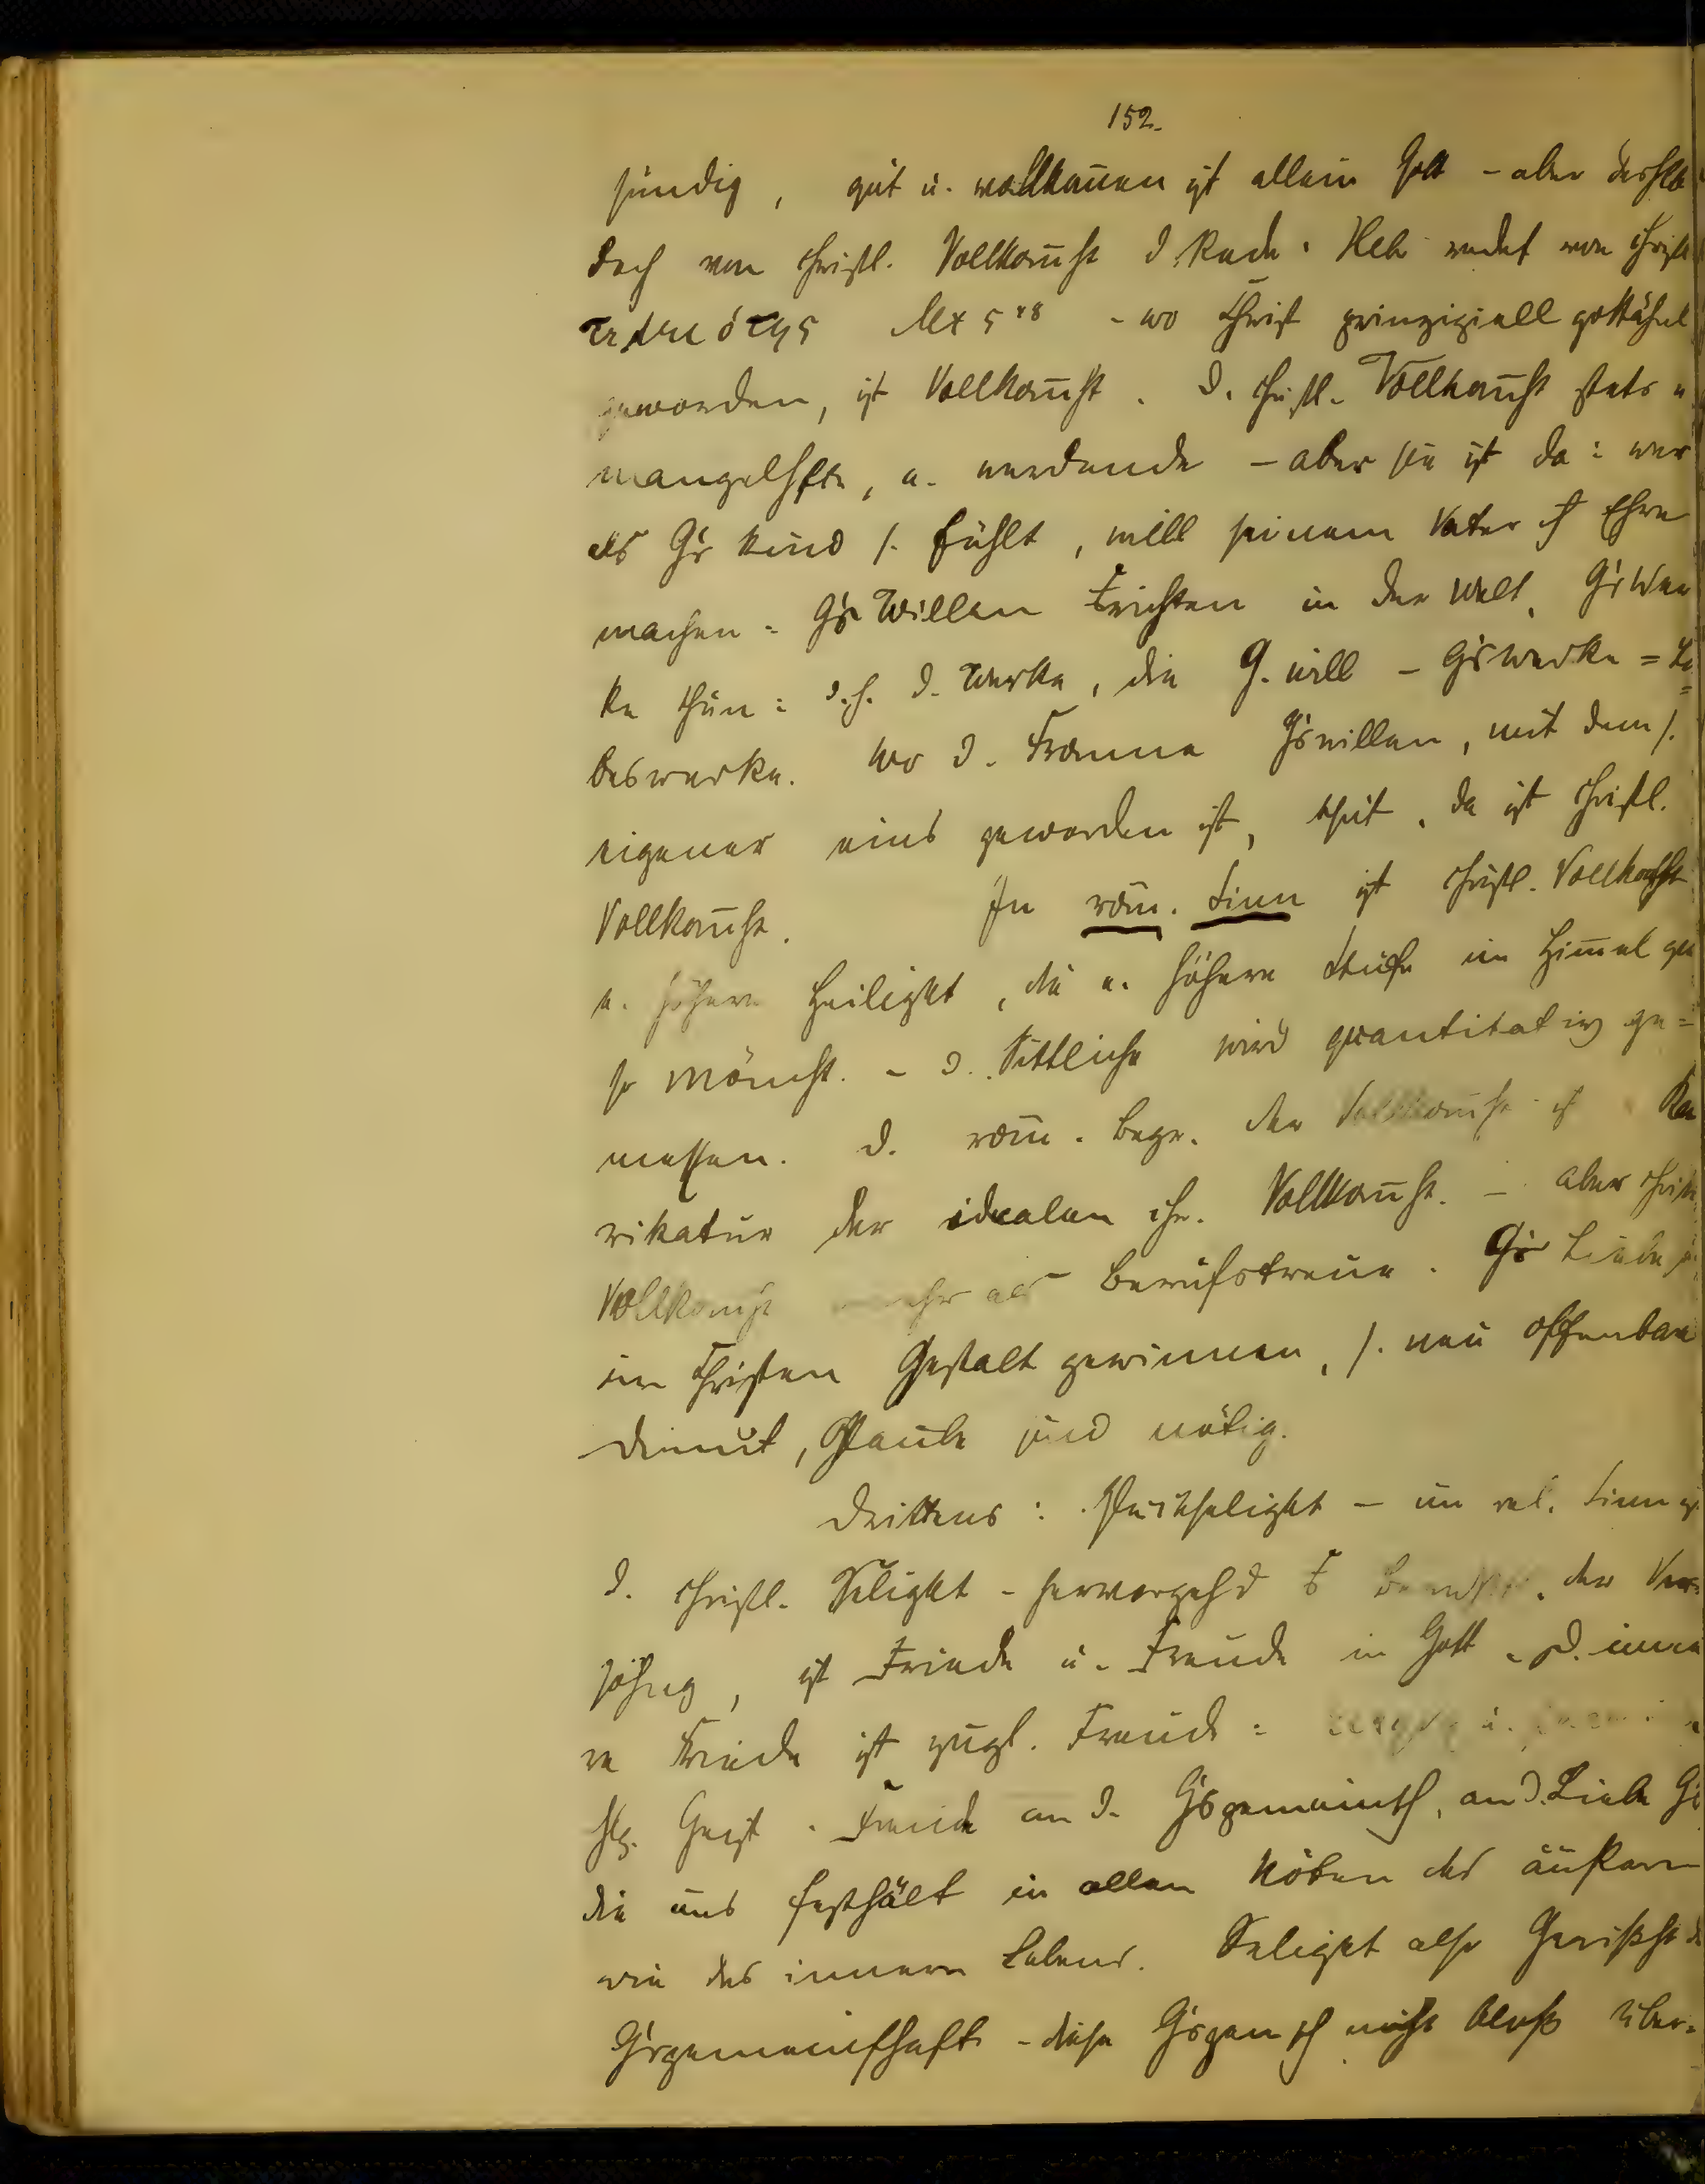 152.
sündig, gut u. vollkom̅en ist allein Gott - aber deshlb
doch von christl. Vollkom̅ht d. Rede. Heb redet von christl
τελειότης Mt 5 48 - wo Christ prinzipiell gottähnl
geworden, ist Vollkom̅ht. D. christl. Vollkom̅ht stets e
mangelhfte, e. werdende - aber sie ist da: wer
als G's Kind s. fühlt, will seinem Vater Ehre
machen = G's Willen in der Welt, G's Wer
ke thun: d.h. d. Werke, die G. will - G's werke = Lie
beswerke. Wo d. Fromme G's willen, mit dem s.
eigener eins geworden ist, thut, da ist christl.
Vollkom̅ht. In röm. Sinn ist christl. Vollkomht
e. höhere Heiligkt, die e. höhere Stufe im Him̅el
so Möncht. - D. Sittliche wird quantitativ ge=
messen. D. röm. Begr. der Vollkom̅ht ist Ka
rikatur der idealen chr. Vollkom̅ht. - aber christl
Vollkomht mehr als Berufstreue. G's Liebe
im Christen Gestalt gewinnen, s. neu offenbare
Demut, Glaube sind nötig.
Drittens: Glückseligkt - im rel. Sinn ist
d. christl. Seligkt - hervorgehd der Ver=
söhng, ist Friede u. Freude in Gott. D. inne
re Friede ist zugl. Freude:
hlg. Geist. Freude an d. G's gemeinsch, an d. Liebe G's
die uns festhält in allen Nöten des äußern
wie des innern Lebens. Seligkt also Gewißht d
G's gemeinschaft - diese G's gemsch nicht bloß über=